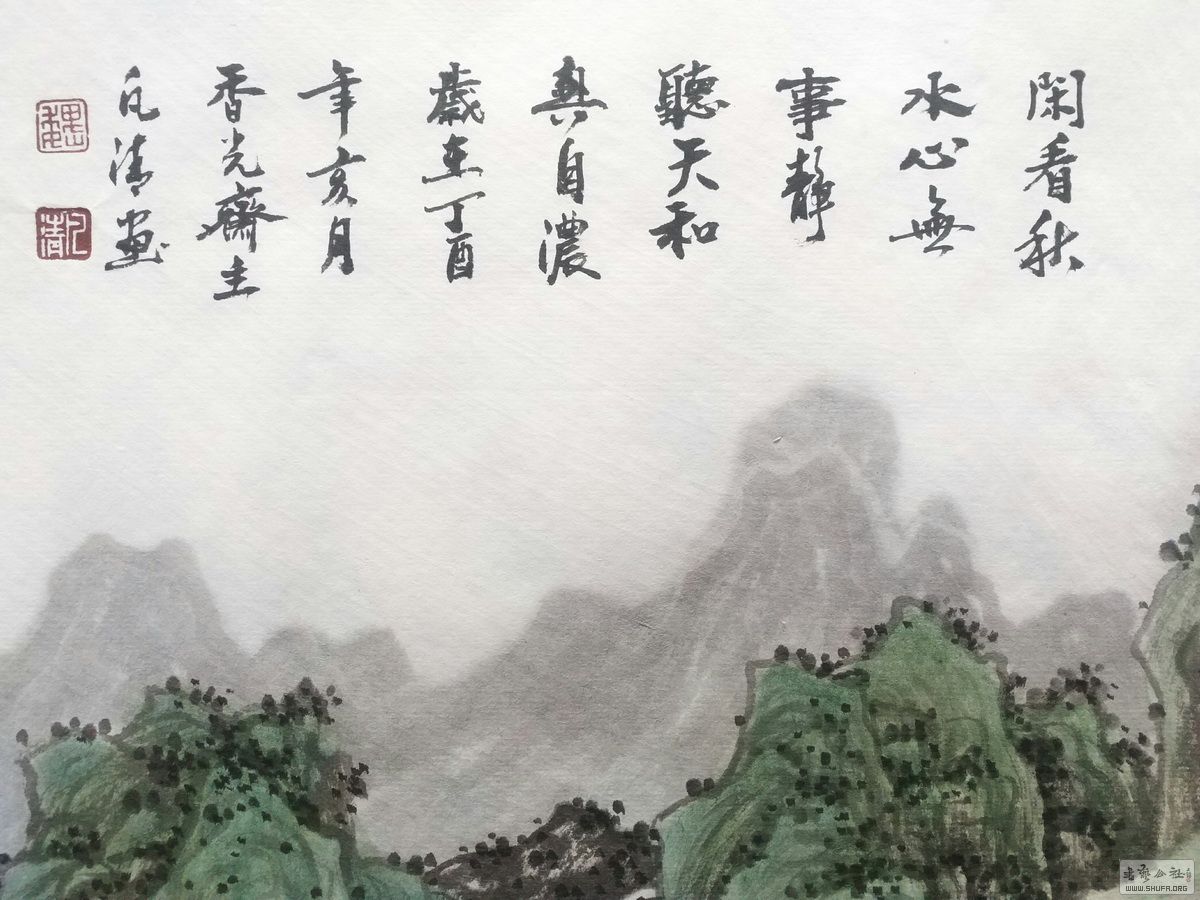 閑看秋
水心無
事靜
聽天和
興自濃
歲在丁酉
年亥月
香光齋主
凡清畫
魏
凡清
書藝公社
WWW.SHUFA.ORG